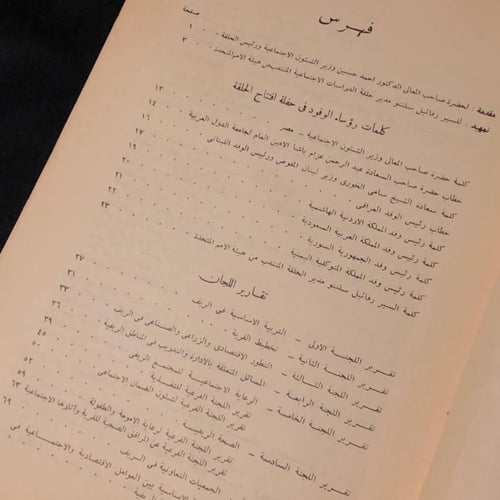 فهرس
صفحة
مقدمة : لحضرة صاحب المعالى الدكتور احمد حسين وزير الشئون الاجتماعية ورئيس الحلقة . . ١
تمهيد : للسير رفائيل سلنتو مدير حلقة الدراسات الاجتماعية المنتدب من هيئة الامم المتحدة . ٣
كلمات رؤساء الوفود فى حفلة افتتاح الحلقة
كلمة حضرة صاحب المعالى وزير الشئون الاجتماعية - مصر . . . ١٢
خطاب حضرة صاحب السعادة عبد الرحمن عزام باشا الامين العام لجامعة الدول العربية ١٤
كلمة سعادة الشيخ سامى الخورى وزير لبنان المفوض ورئيس الوفد اللبنانى ١٦
خطاب رئيس الوفد العراقى . . . ١٧
كلمة رئيس وفد المملكة الاردنية الهاشمية . . . ١٩
كلمة رئيس وفد المملكة العربية السعودية . . . ٢٠
كلمة رئيس وفد الجمهورية السورية . . . ٢١
كلمة رئيس وفد المملكة المتوكلية اليمنية . . . ٢٢
كلمة السير رفائيل سلنتو مدير الحلقة المنتدب من هيئة الامم المتحدة . ٢٣
تقارير اللجان
تقرير اللجنة الاولى - التربية الاساسية فى الريف . . . ٢٧
تقرير اللجنة الثانية - تخطيط القرية . . . ٣١
تقرير اللجنة الثالثة - التطور الاقتصادى والزراعى والصناعى فى الريف . ٣٢
تقرير اللجنة الرابعة - المسائل المتعلقة بالادارة والتدريب فى المناطق الريفية . ٣٦
تقرير اللجنة الخامسة - الرعاية الاجتماعية للمجتمع الريفى . . ٣٩
تقرير اللجنة الفرعية للتغذية . . . ٤٥
تقرير اللجنة الفرعية لشئون الضمان الاجتماعى . . ٥٠
تقرير اللجنة السادسة - الصحة الريفية . . . ٥٢
تقرير اللجنة الفرعية لرعاية الامومة والطفولة . . ٥٩
تقرير اللجنة الفرعية عن المرافق الصحية للقرية وآثارها الاجتماعية ٦٣
الجمعيات التعاونية فى الريف . . . ٦٩
الاساسية بين العوامل الاقتصادية والاجتماعية فى